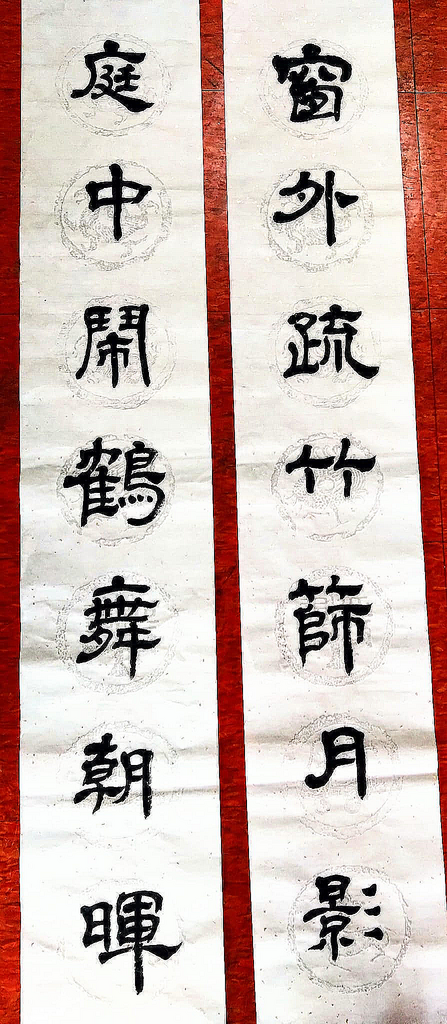 窗外疏竹篩月影
庭中鬧鶴舞朝暉